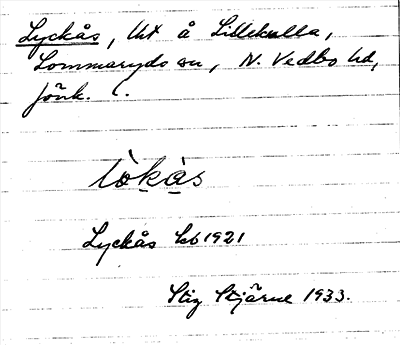 Lyckås, lht å Lillekulla,
Lommaryds sn, N. Vedbo hd,
Jönk. l.
lò̱kà̱s
Lyckås kb 1921
Stig Stjärne 1933.